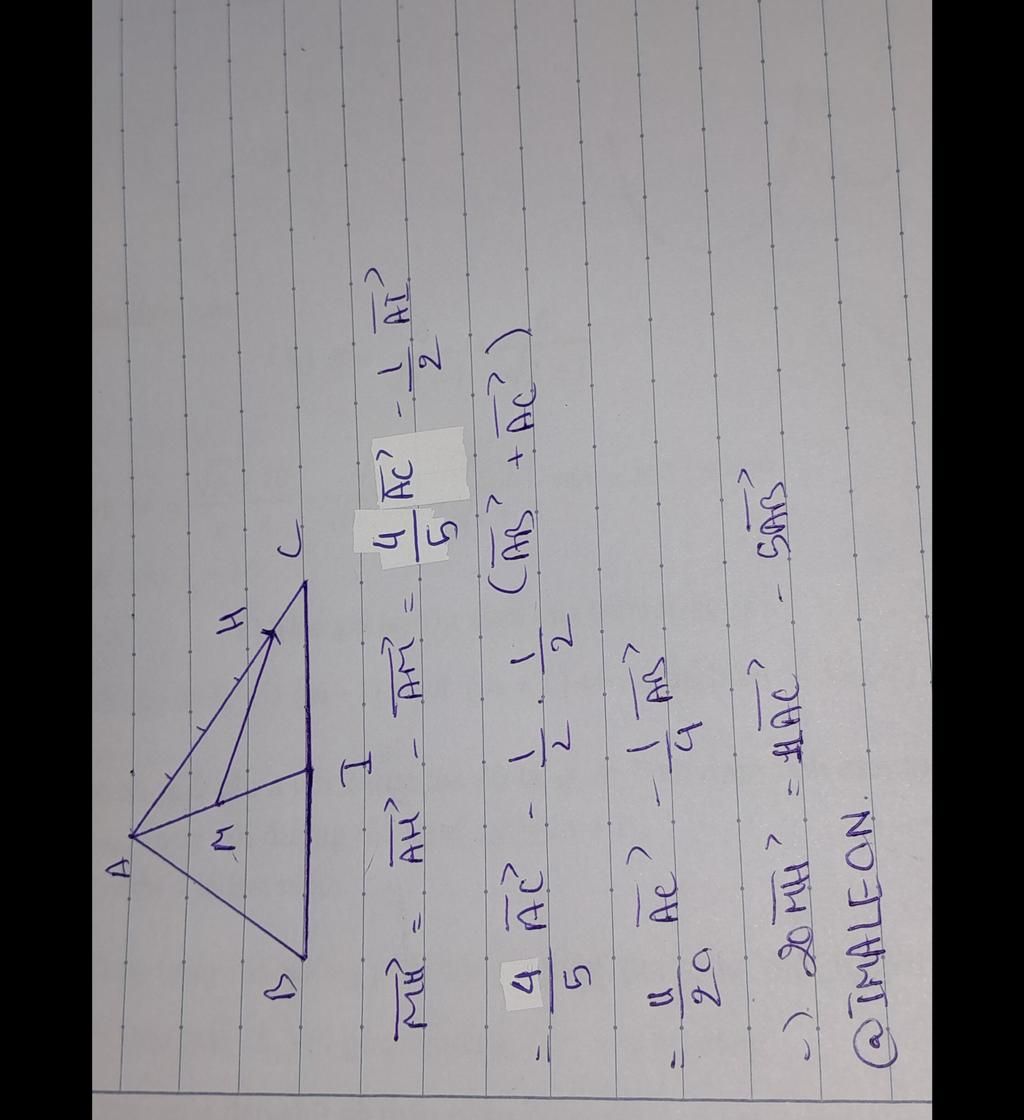 A
M
H
B
I
C
\overrightarrow{MH} = \overrightarrow{AH} - \overrightarrow{AM} = \frac{4}{5} \overrightarrow{AC} - \frac{1}{2} \overrightarrow{AI}
= \frac{4}{5} \overrightarrow{AC} - \frac{1}{2} . \frac{1}{2} (\overrightarrow{AB} + \overrightarrow{AC})
= \frac{11}{20} \overrightarrow{AC} - \frac{1}{4} \overrightarrow{AB}
=) 20 \overrightarrow{MH} = 11 \overrightarrow{AC} - 5 \overrightarrow{AB}
@IMALEON.